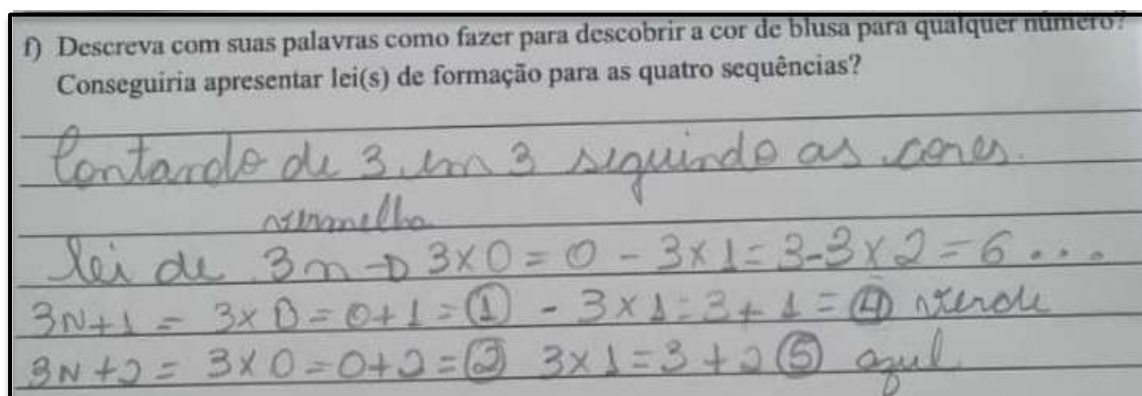 f) Descreva com suas palavras como fazer para descobrir a cor de blusa para qualquer número?
Conseguiria apresentar lei(s) de formação para as quatro sequências?
Contando de 3 em 3 seguindo as cores.
vermelha
lei de 3n → 3x0=0 - 3x1=3-3x2=6...
3N+1 = 3x0=0+1=① - 3x1=3+1=④ verde
3N+2= 3x0=0+2=② 3x1=3+2⑤ azul